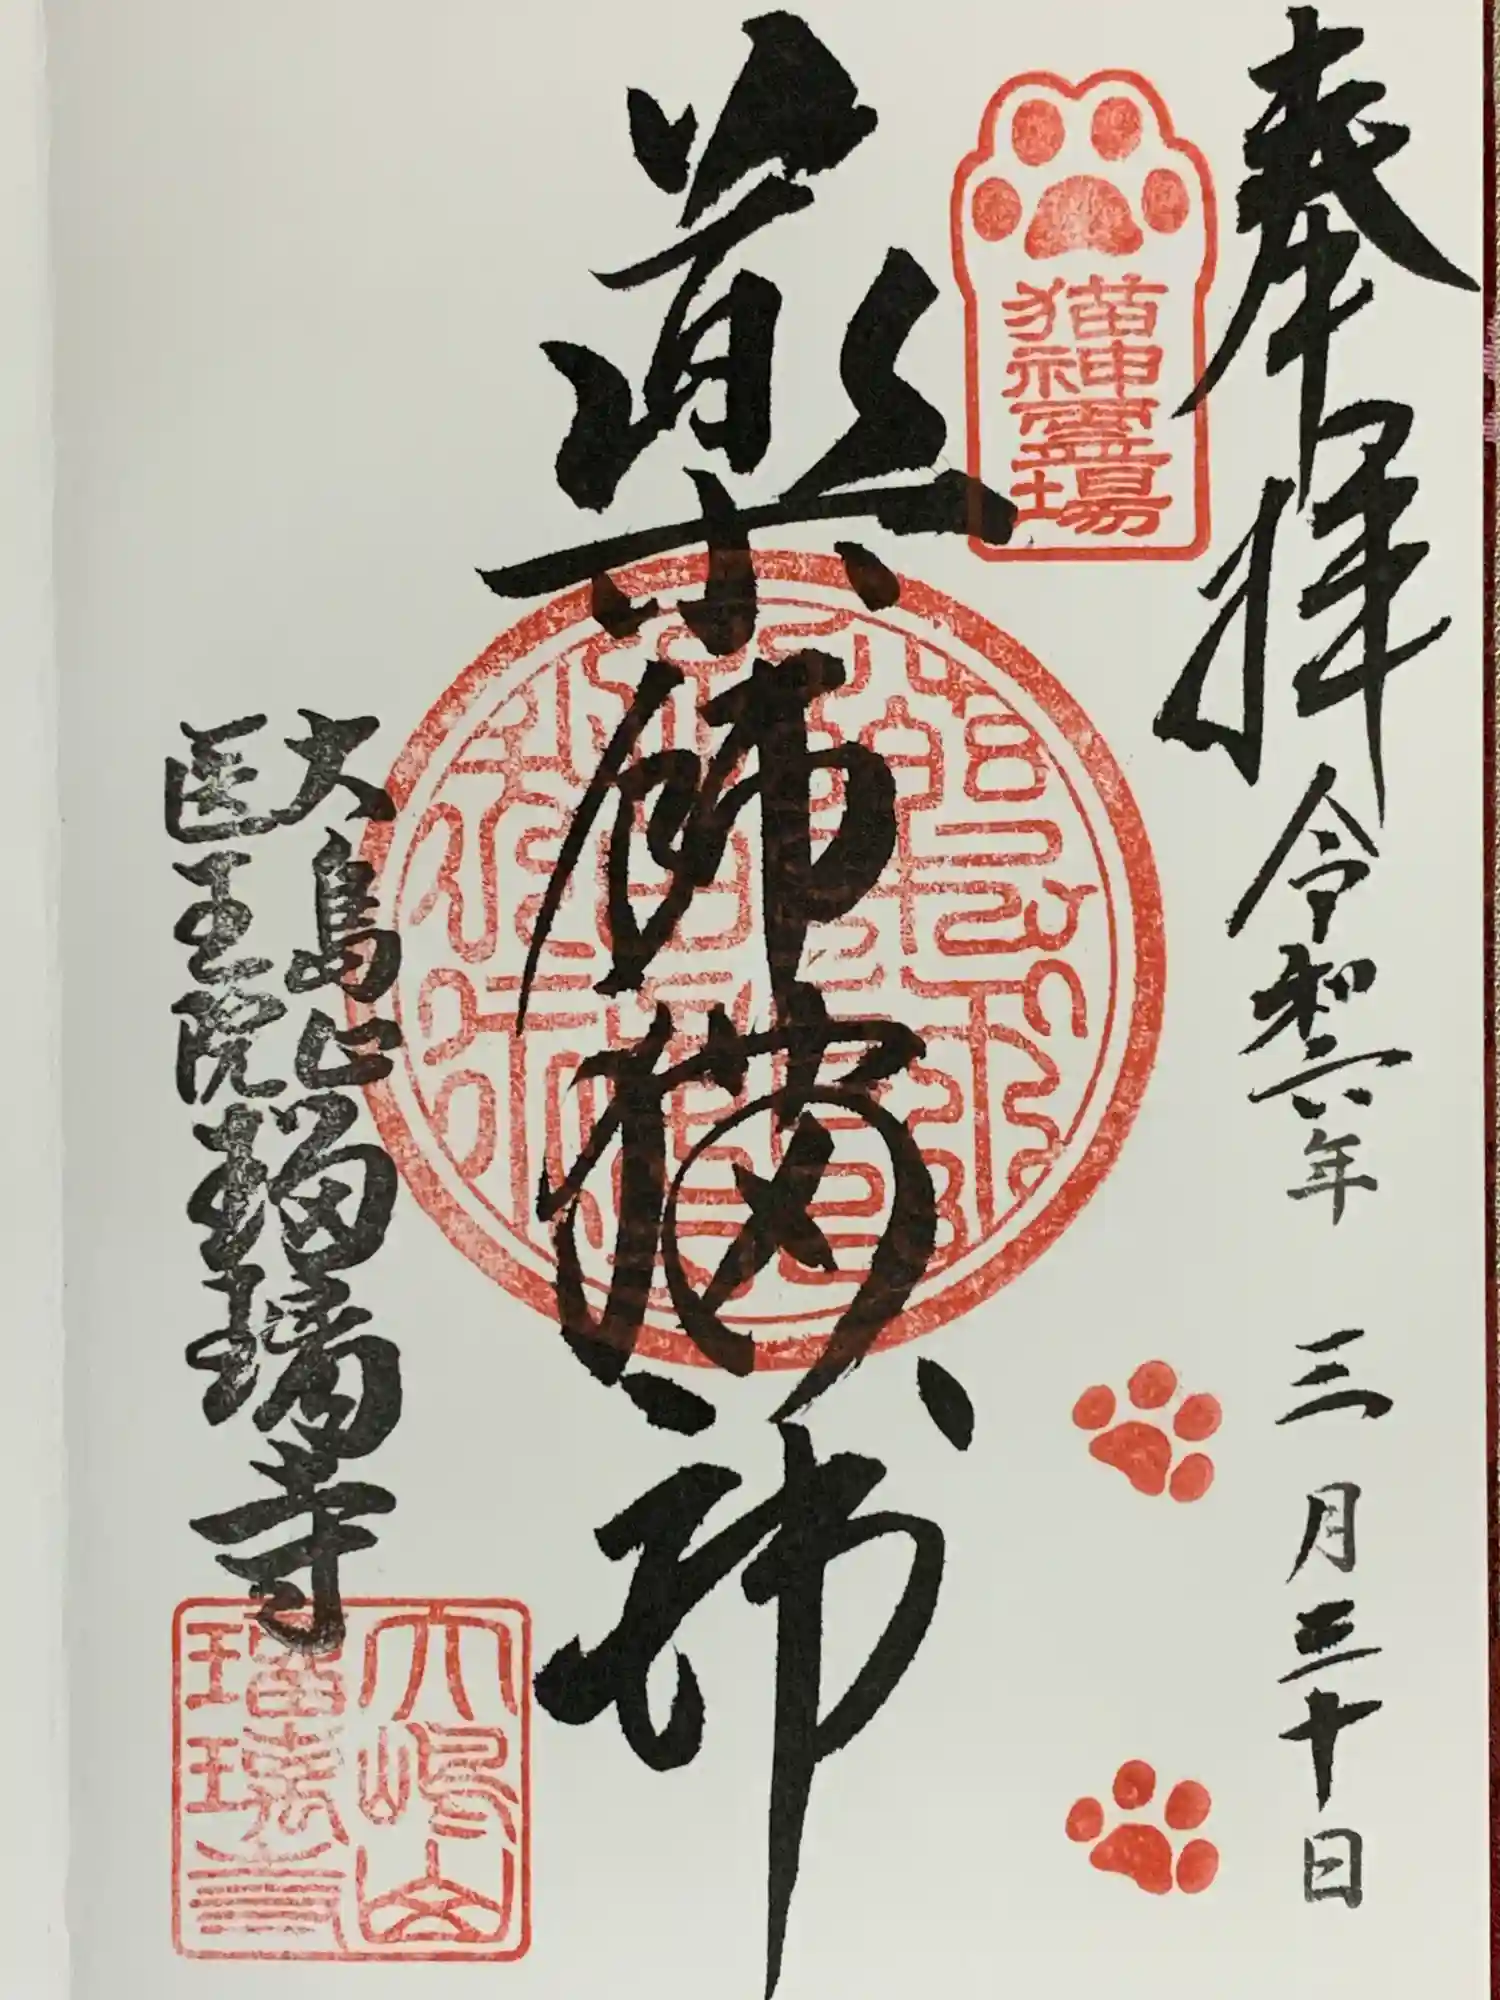 奉拝 令和六年 三月三十日
猫神霊場
薬師猫神
大島山
医王院 瑠璃寺
大嶋山
瑠璃寺